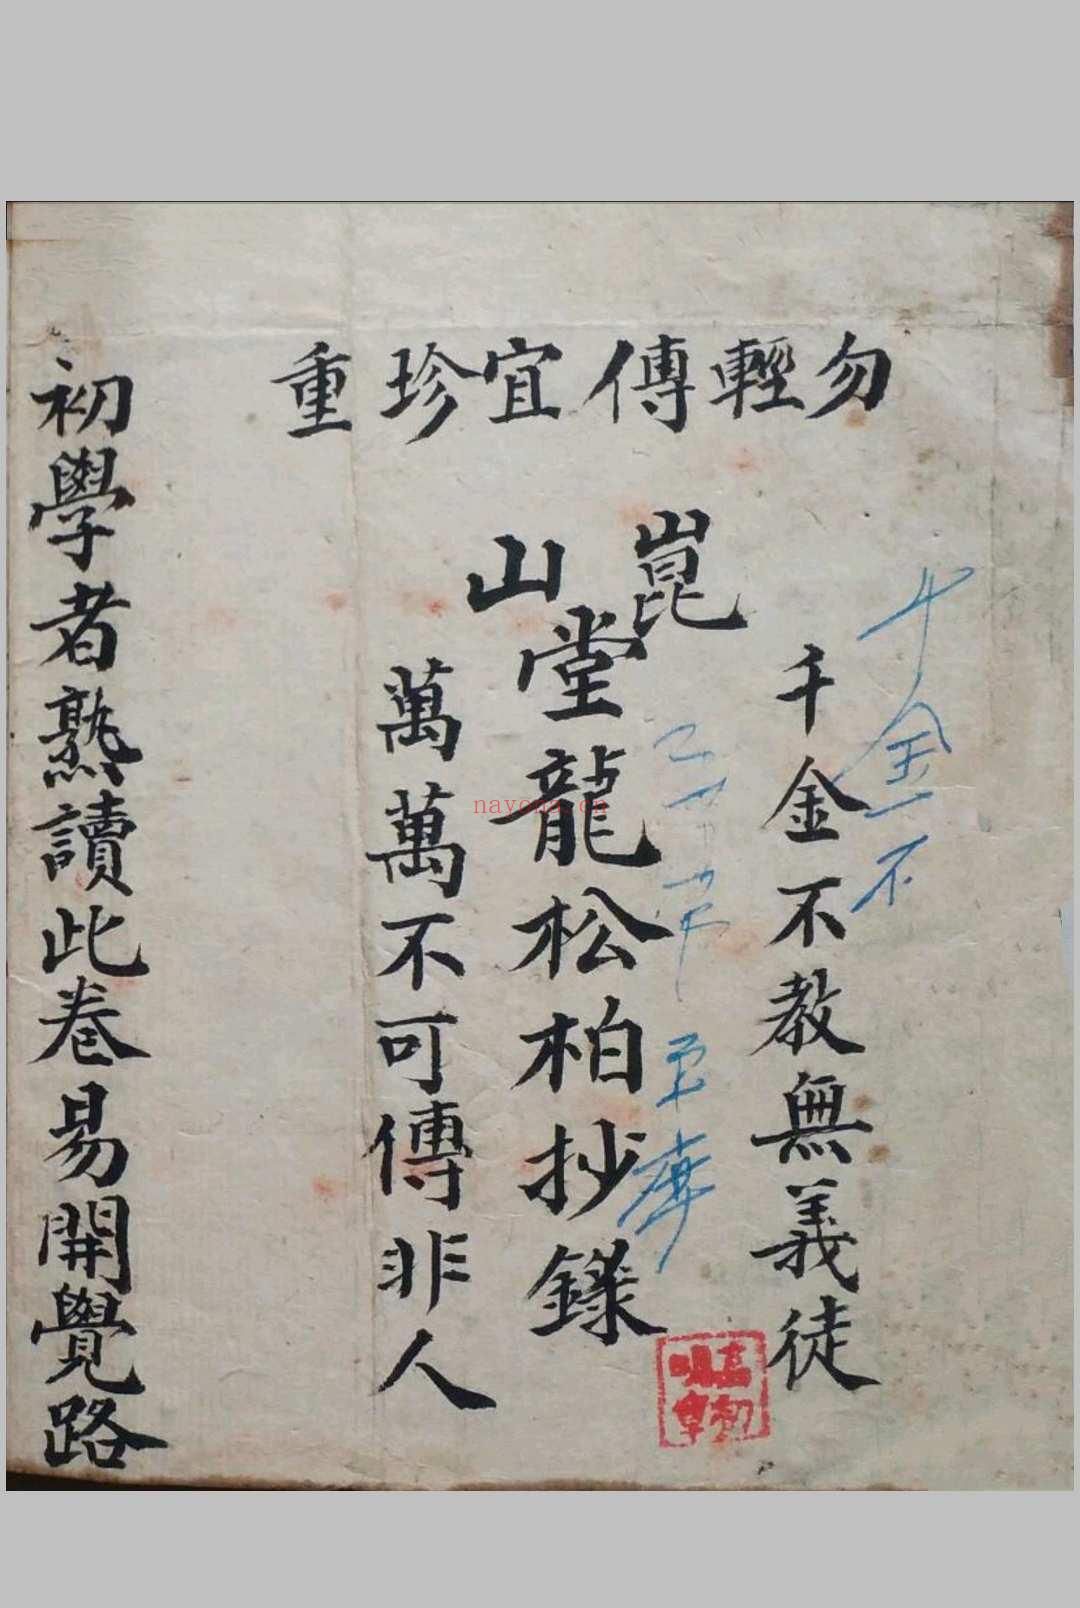 勿輕傳宜珍重
千金不
千金不教無義徒
崑山
堂龍松柏抄錄
萬萬不可傳非人
初學者熟讀此卷易開覺路
nayona.cn